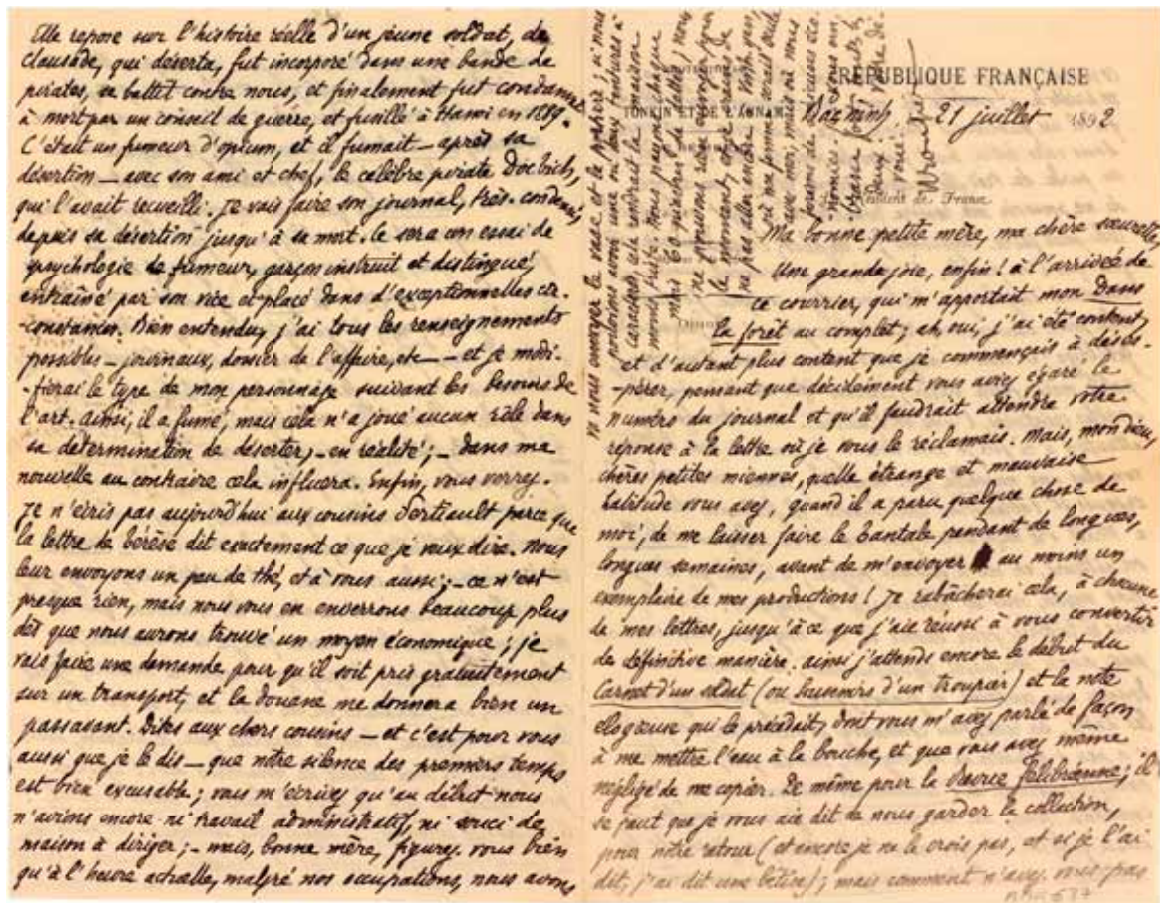 Elle repose sur l'histoire réelle d'un jeune soldat, de
Clausade, qui déserta, fut incorporé dans une bande de
pirates, se battit contre nous, et finalement fut condamné
à mort par un conseil de guerre, et fusillé à Hanoi en 1889.
C'était un fumeur d'opium, et il fumait — après sa
désertion — avec son ami et chef, le célèbre pirate Doc Tich,
qui l'avait recueilli. Je vais faire son journal, très-condensé,
depuis sa désertion jusqu'à sa mort. Ce sera un essai de
psychologie de fumeur, garçon instruit et distingué,
entraîné par son vice et placé dans d'exceptionnelles cir-
-constances. Bien entendu, j'ai tous les renseignements
possibles — journaux, dossier de l'affaire, etc — et je modi-
-fierai le type de mon personnage suivant les besoins de
l'art. Ainsi, il a fumé, mais cela n'a joué aucun rôle dans
sa détermination de déserter, — en réalité; — dans ma
nouvelle au contraire cela influera. Enfin, vous verrez.
Je n'écris pas aujourd'hui aux cousins Dertiault parce que
la lettre de Térèse dit exactement ce que je veux dire. Nous
leur envoyons un peu de thé, et à vous aussi; — ce n'est
presque rien, mais nous vous en enverrons beaucoup plus
dès que nous aurons trouvé un moyen économique; je
vais faire une demande pour qu'il soit pris gratuitement
sur un transport, et la douane me donnera bien un
passavant. Dites aux chers cousins — et c'est pour vous
aussi que je le dis — que notre silence des premiers temps
est bien excusable; vous m'écrivez qu'au début nous
n'avions encore ni travail administratif, ni souci de
maison à diriger; — mais, bonne mère, figurez-vous bien
qu'à l'heure actuelle, malgré nos occupations, nous avons
nous envoyer le vase et le si nous
pouvions avoir une ou deux tentures à
cela rendrait la maison
moins triste. Nous payons chaque
mois 60 piastres de dettes; nous
ne pouvons rien envoyer pour
le moment,
ne pas aller encore
où ma femme serait seule
avec moi; mais où nous
ferions de
-nomies.
deux! votre dé-
voué.
RÉPUBLIQUE FRANÇAISE
TONKIN ET DE L'ANNAM
Bac-ninh, 21 juillet 1892
Résident de France
Ma bonne petite mère, ma chère sœurette,
Une grande joie, enfin! à l'arrivée de
ce courrier, qui m'apportait mon Dans
la forêt au complet; ah, oui, j'ai été content,
et d'autant plus content que je commençais à déses-
-pérer, pensant que décidément vous aviez égaré le
numéro du journal et qu'il faudrait attendre votre
réponse à la lettre où je vous le réclamais. Mais, mon dieu,
chères petites miennes, quelle étrange et mauvaise
habitude vous avez, quand il a paru quelque chose de
moi, de me laisser faire le Tantale pendant de longues,
longues semaines, avant de m'envoyer au moins un
exemplaire de mes productions! Je rabâcherai cela, à chacune
de mes lettres, jusqu'à ce que j'aie réussi à vous convertir
de définitive manière. Ainsi j'attends encore le début du
Carnet d'un soldat (ou d'un troupier) et la note
élogieuse qui le précédait, dont vous m'avez parlé de façon
à me mettre l'eau à la bouche, et que vous avez même
négligé de me copier. De même pour la Revue Félibréenne; il
se peut que je vous aie dit de nous garder la collection,
pour notre retour (et encore je ne le crois pas, et si je l'ai
dit, j'ai dit une bêtise); mais comment n'avez-vous pas